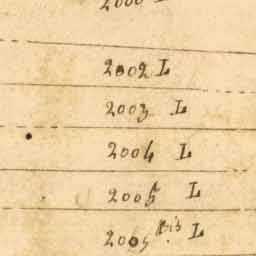 2002 L
2003 L
2004 L
2005 L
2005 bis L